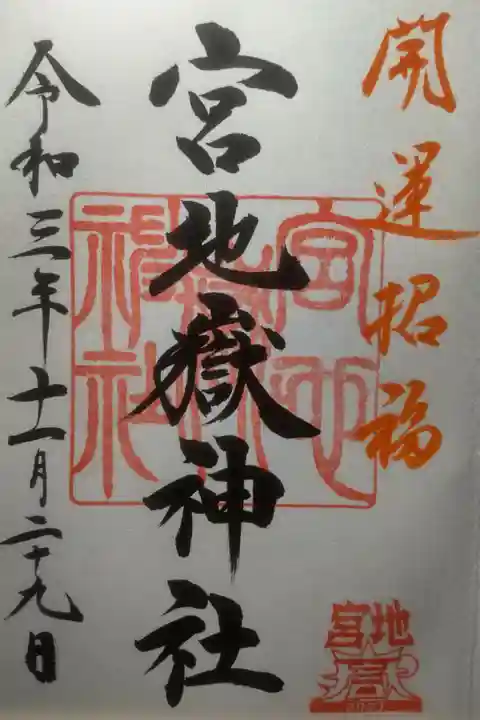 開運招福
宮地嶽神社
令和三年十一月二十九日
宮地嶽神社
宮地嶽